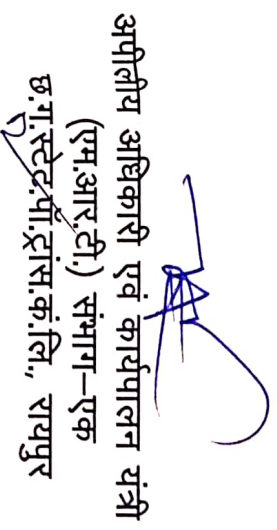 अपीलीय अधिकारी एवं कार्यपालन यंत्री
(एम.आर.टी.) संभाग–एक
छ.ग.स्टेट.पॉ.ट्रांस.कं.लि., रायपुर